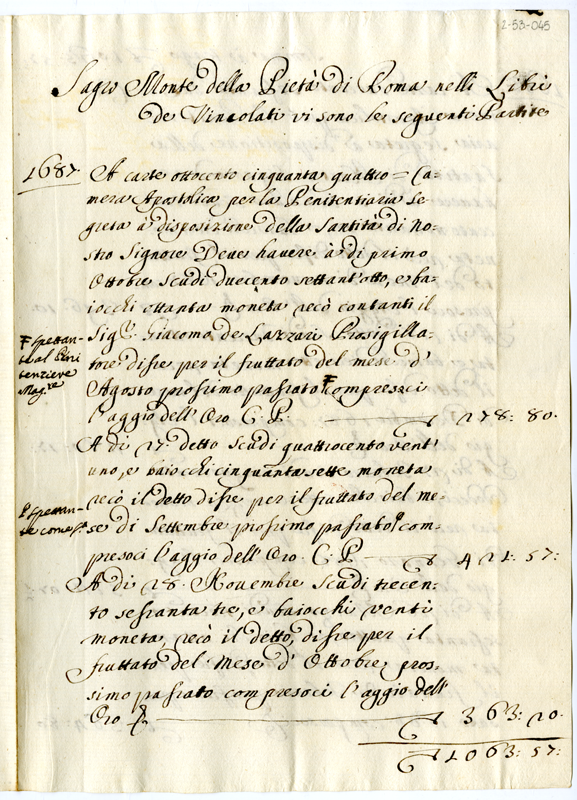 2-53-045
Sagro Monte della Pietà di Roma nelli Libri
de Vincolati vi sono le seguenti Partite
1687.
A carte ottocento cinquanta quattro = Ca-
mera Apostolica per la Penitentiaria Se-
greta à disposizione della Santità di No-
stro Signore Deve havere à dì primo
Ottobre scudi duecento settant'otto, e ba-
iocchi ottanta moneta recò contanti il
Sigr. Giacomo de Lazzari Prosigilla-
tore disse per il fruttato del mese d'
Agosto prossimo passato compresoci
l'aggio dell'Oro C. P. 278: 80.
spettan-
te al Peni
tenziere
Magre
A dì 27 detto scudi quattrocento vent'
uno, e baiocchi cinquanta sette moneta
recò il detto disse per il fruttato del me-
se di Settembre prossimo passato com-
presoci l'aggio dell'Oro. C. P. 421: 57:
spettan-
te come sa.
A dì 28. Novembre scudi trecen-
to sessanta tre, e baiocchi venti
moneta, recò il detto, disse per il
fruttato del Mese d'Ottobre pros-
simo passato compresoci l'aggio dell'
Oro 363: 20.
1063: 57: